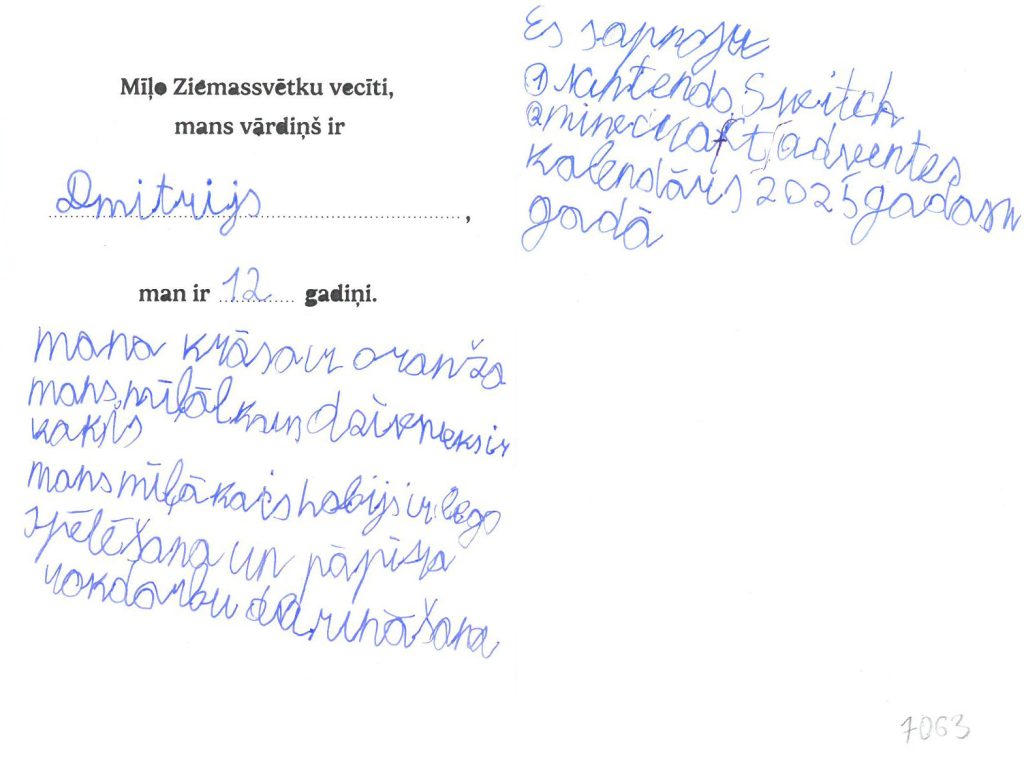 Mīļo Ziemassvētku vecīti,
mans vārdiņš ir
Dmitrijs,
man ir 12 gadiņi.
mana krāsa ir oranža
mans dzīvnieks ir
kaķis
mans mīļākais hobijs ir lego
spēlēšana un
rokdarbu darināšana
Es sapņoju
① Nintendo Switch
② minecraft adventes
kalendārs 2025
gadā
7063